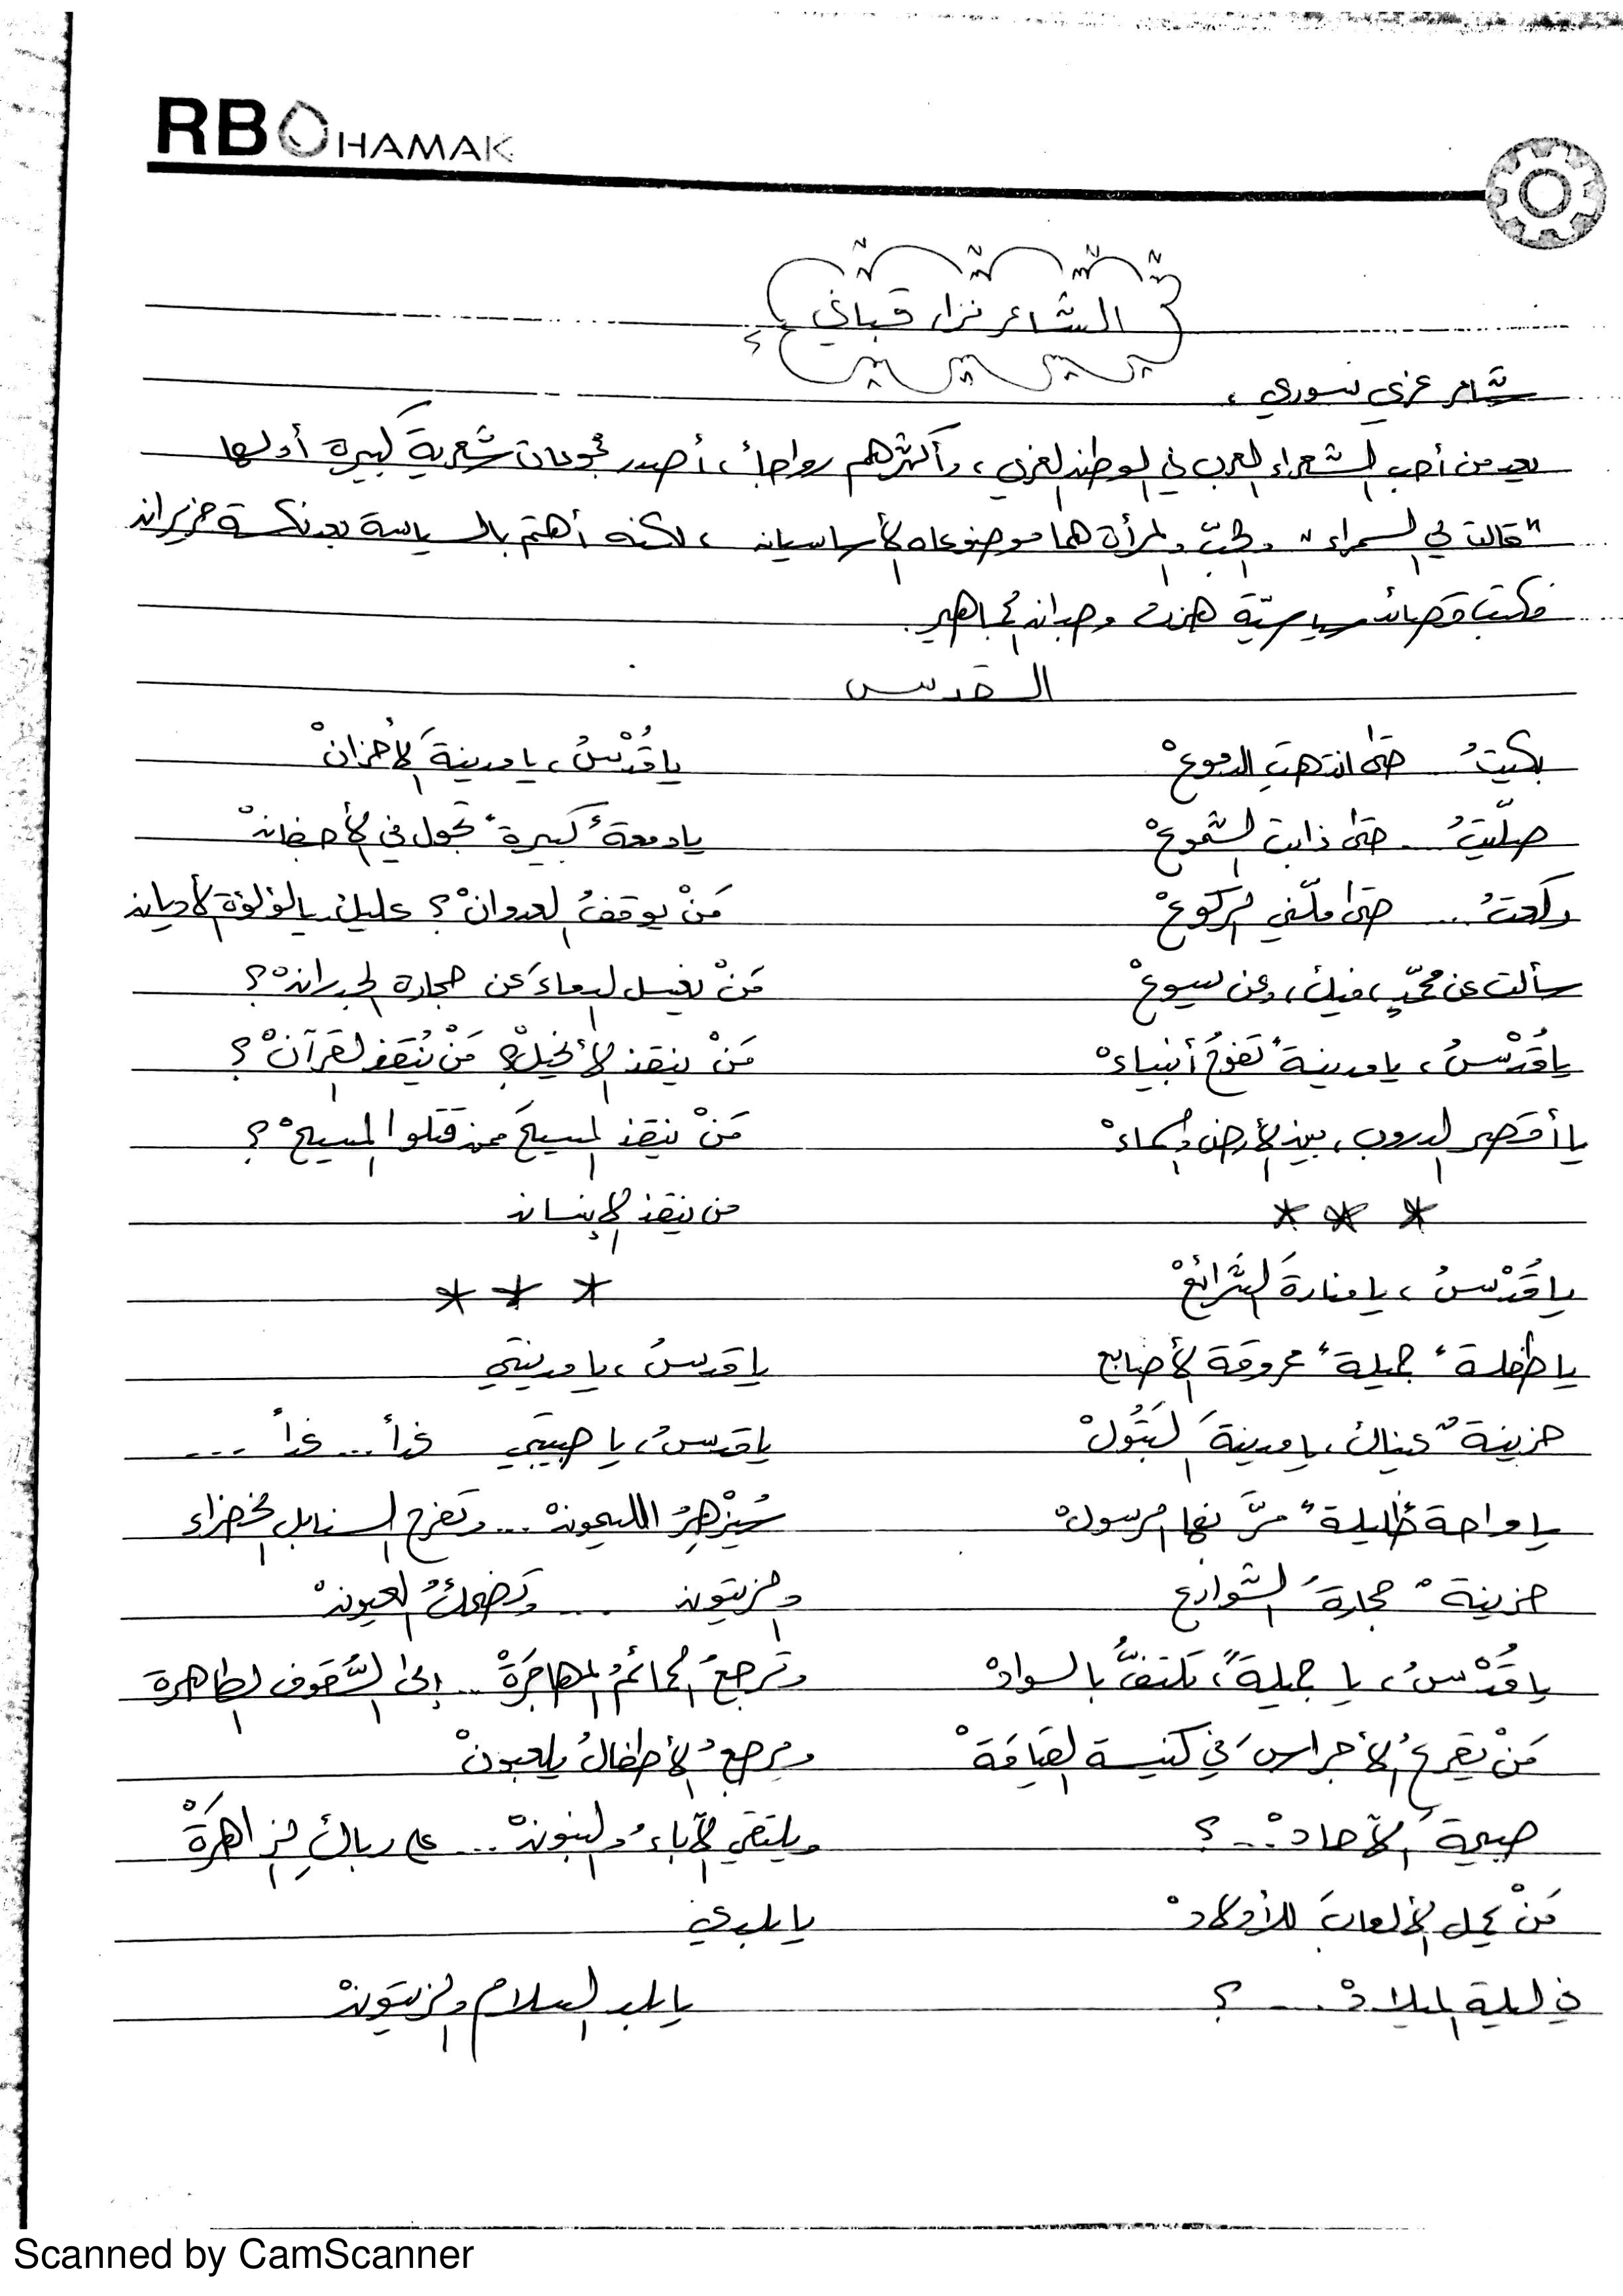 RB HAMAK
الشاعر نزار قباني
شاعر عربي سوري ،
يعد من أحب الشعراء العرب في الوطن العربي ، وأكثرهم رواجاً ، أصدر مجموعات شعرية كبيرة أولها
"قالت لي السمراء" والحبّ والمرأة هما موضوعاه الأساسيان ، لكنه أهتم بالسياسة بعد نكسة حزيران
فكتب قصائد سياسيّة هزت وجدان الجماهير .
القدس
بكيتُ ... حتى انتهتِ الدموعْ
صلّيتُ ... حتى ذابت الشموعْ
ركعتُ ... حتى ملّني الركوعْ
سألت عن محمّدٍ ، فيكِ ، وعن يسوعْ
يا قُدْسُ ، يا مدينةً تفوحُ أنبياءْ
يا أقصر الدروب ، بين الأرض والسماءْ
* * *
يا قُدْسُ ، يا منارةَ الشَّرائعْ
يا طفلةً جميلةً محروقة الأصابع
حزينةٌ عيناكِ ، يا مدينةَ البَتُولْ
يا واحةً ظليلةً مرَّ بها الرسولْ
حزينةٌ حجارةُ الشوارع
يا قُدْسُ ، يا جميلةً ، تلتفُّ بالسوادْ
مَنْ يقرعُ الأجراسَ في كنيسة القيامَةْ
صبيحةَ الآحادْ ... ؟
مَنْ يحمل الألعابَ للأولادْ
في ليلة الميلادْ ... ؟
يا قُدْسُ ، يا مدينةَ الأحزانْ
يا دمعةً كبيرةً تجول في الأجفانْ
مَنْ يوقفُ العدوانْ ؟ عليكِ يا لؤلؤة الأديان
مَنْ يغسل الدماءَ عن حجارة الجدرانْ ؟
مَنْ ينقذ الأنجيلْ ؟ مَنْ يُنقذ القرآنْ ؟
مَنْ ينقذ المسيحَ ممن قتلوا المسيحْ ؟
من ينقذ الإنسان
* * *
يا قدسُ ، يا مدينتي
يا قدسُ ، يا حبيبتي غداً ... غداً ...
سَيُزْهِرُ الليمونْ ... وتفرح السنابل الخضراء
والزيتون ... وتضحكُ العيونْ
وتَرجعُ الحمائمُ المهاجَرَةْ ... إلى السُّقوف الطاهرة
ويرجعُ الأطفالُ يلعبونْ
ويلتقي الآباءُ والبنونْ ... على رباكِ الزاهرَةْ
يا بلدي
يا بلد السلام والزيتونْ
Scanned by CamScanner